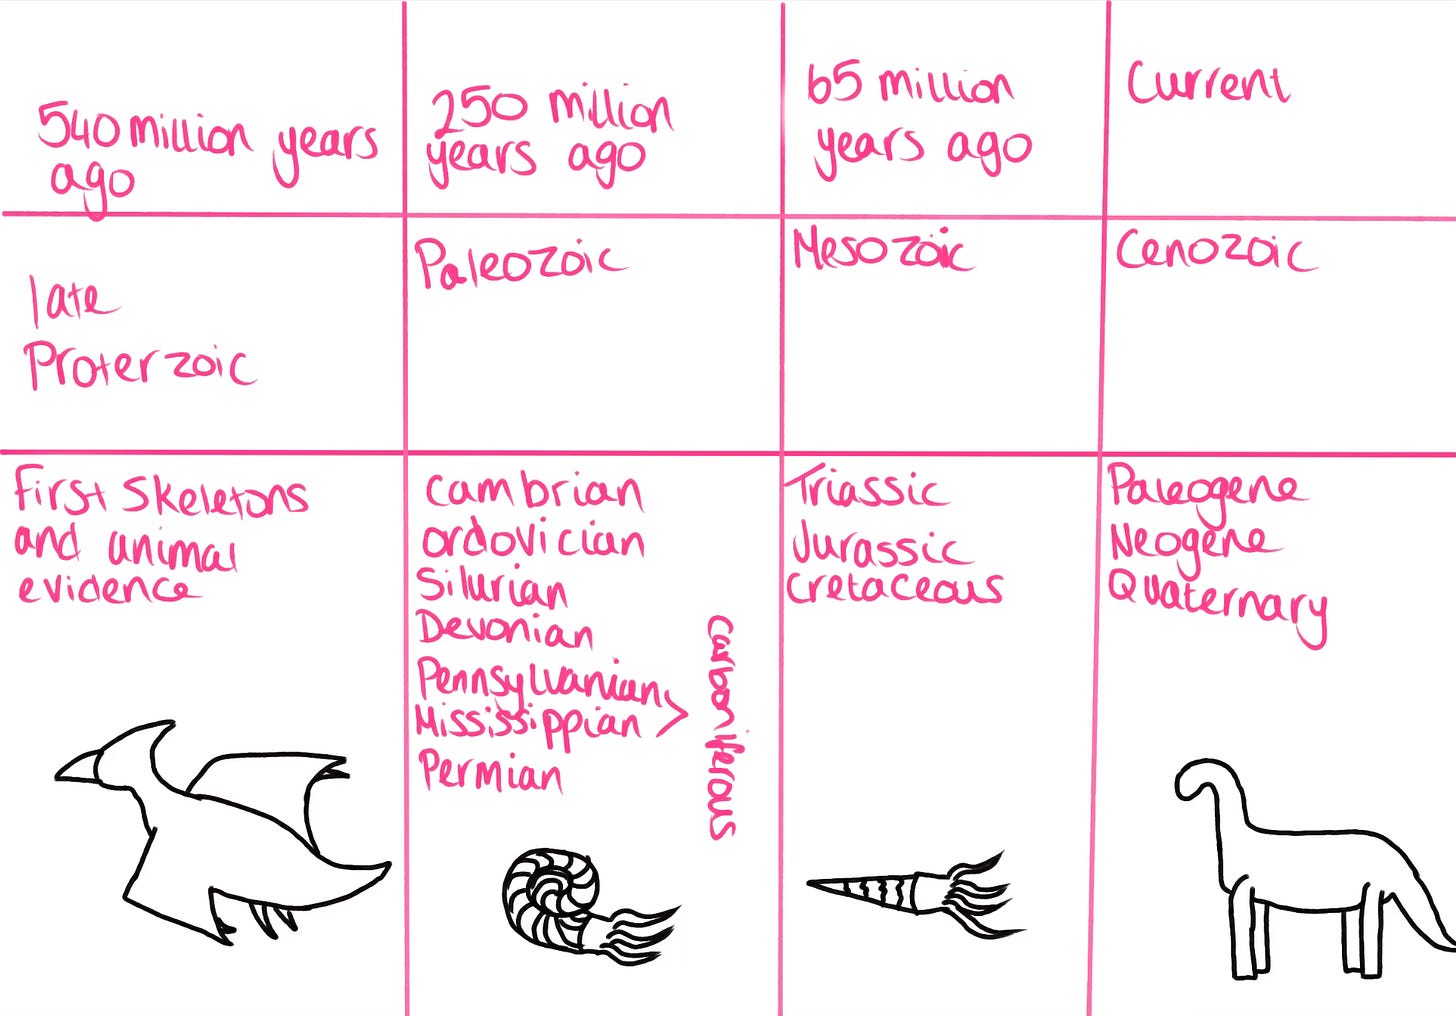 540 million years
ago
250 million
years ago
65 million
years ago
Current
late
Proterzoic
Paleozoic
Mesozoic
Cenozoic
First Skeletons
and animal
evidence
Cambrian
ordovician
Silurian
Devonian
Pennsylvanian
Mississippian
Permian
Carboniferous
Triassic
Jurassic
Cretaceous
Paleogene
Neogene
Quaternary